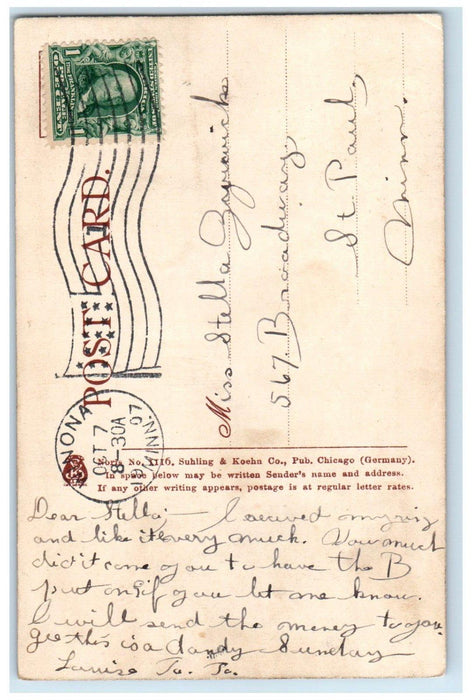 POST CARD.
WINONA, MINN.
OCT 7
8-30A
1907
Miss Stella
567 Broadway,
St Paul,
Minn.
No. 1116, Suhling & Koehn Co., Pub. Chicago (Germany).
In space below may be written Sender's name and address.
If any other writing appears, postage is at regular letter rates.
Dear Stella:- I received my
and like it very much. How much
did it come you to have the B
put on if you let me know.
I will send the money to you
gee this is a dandy Sunday
Louise Ta. Ta.